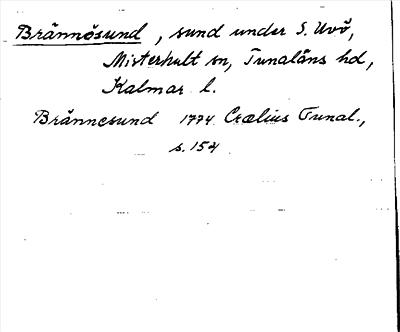 Brännösund, sund under S. Uvö,
Misterhult sn, Tunaläns hd,
Kalmar l.
Brännesund 1774 Crælius Tunal.,
s. 154